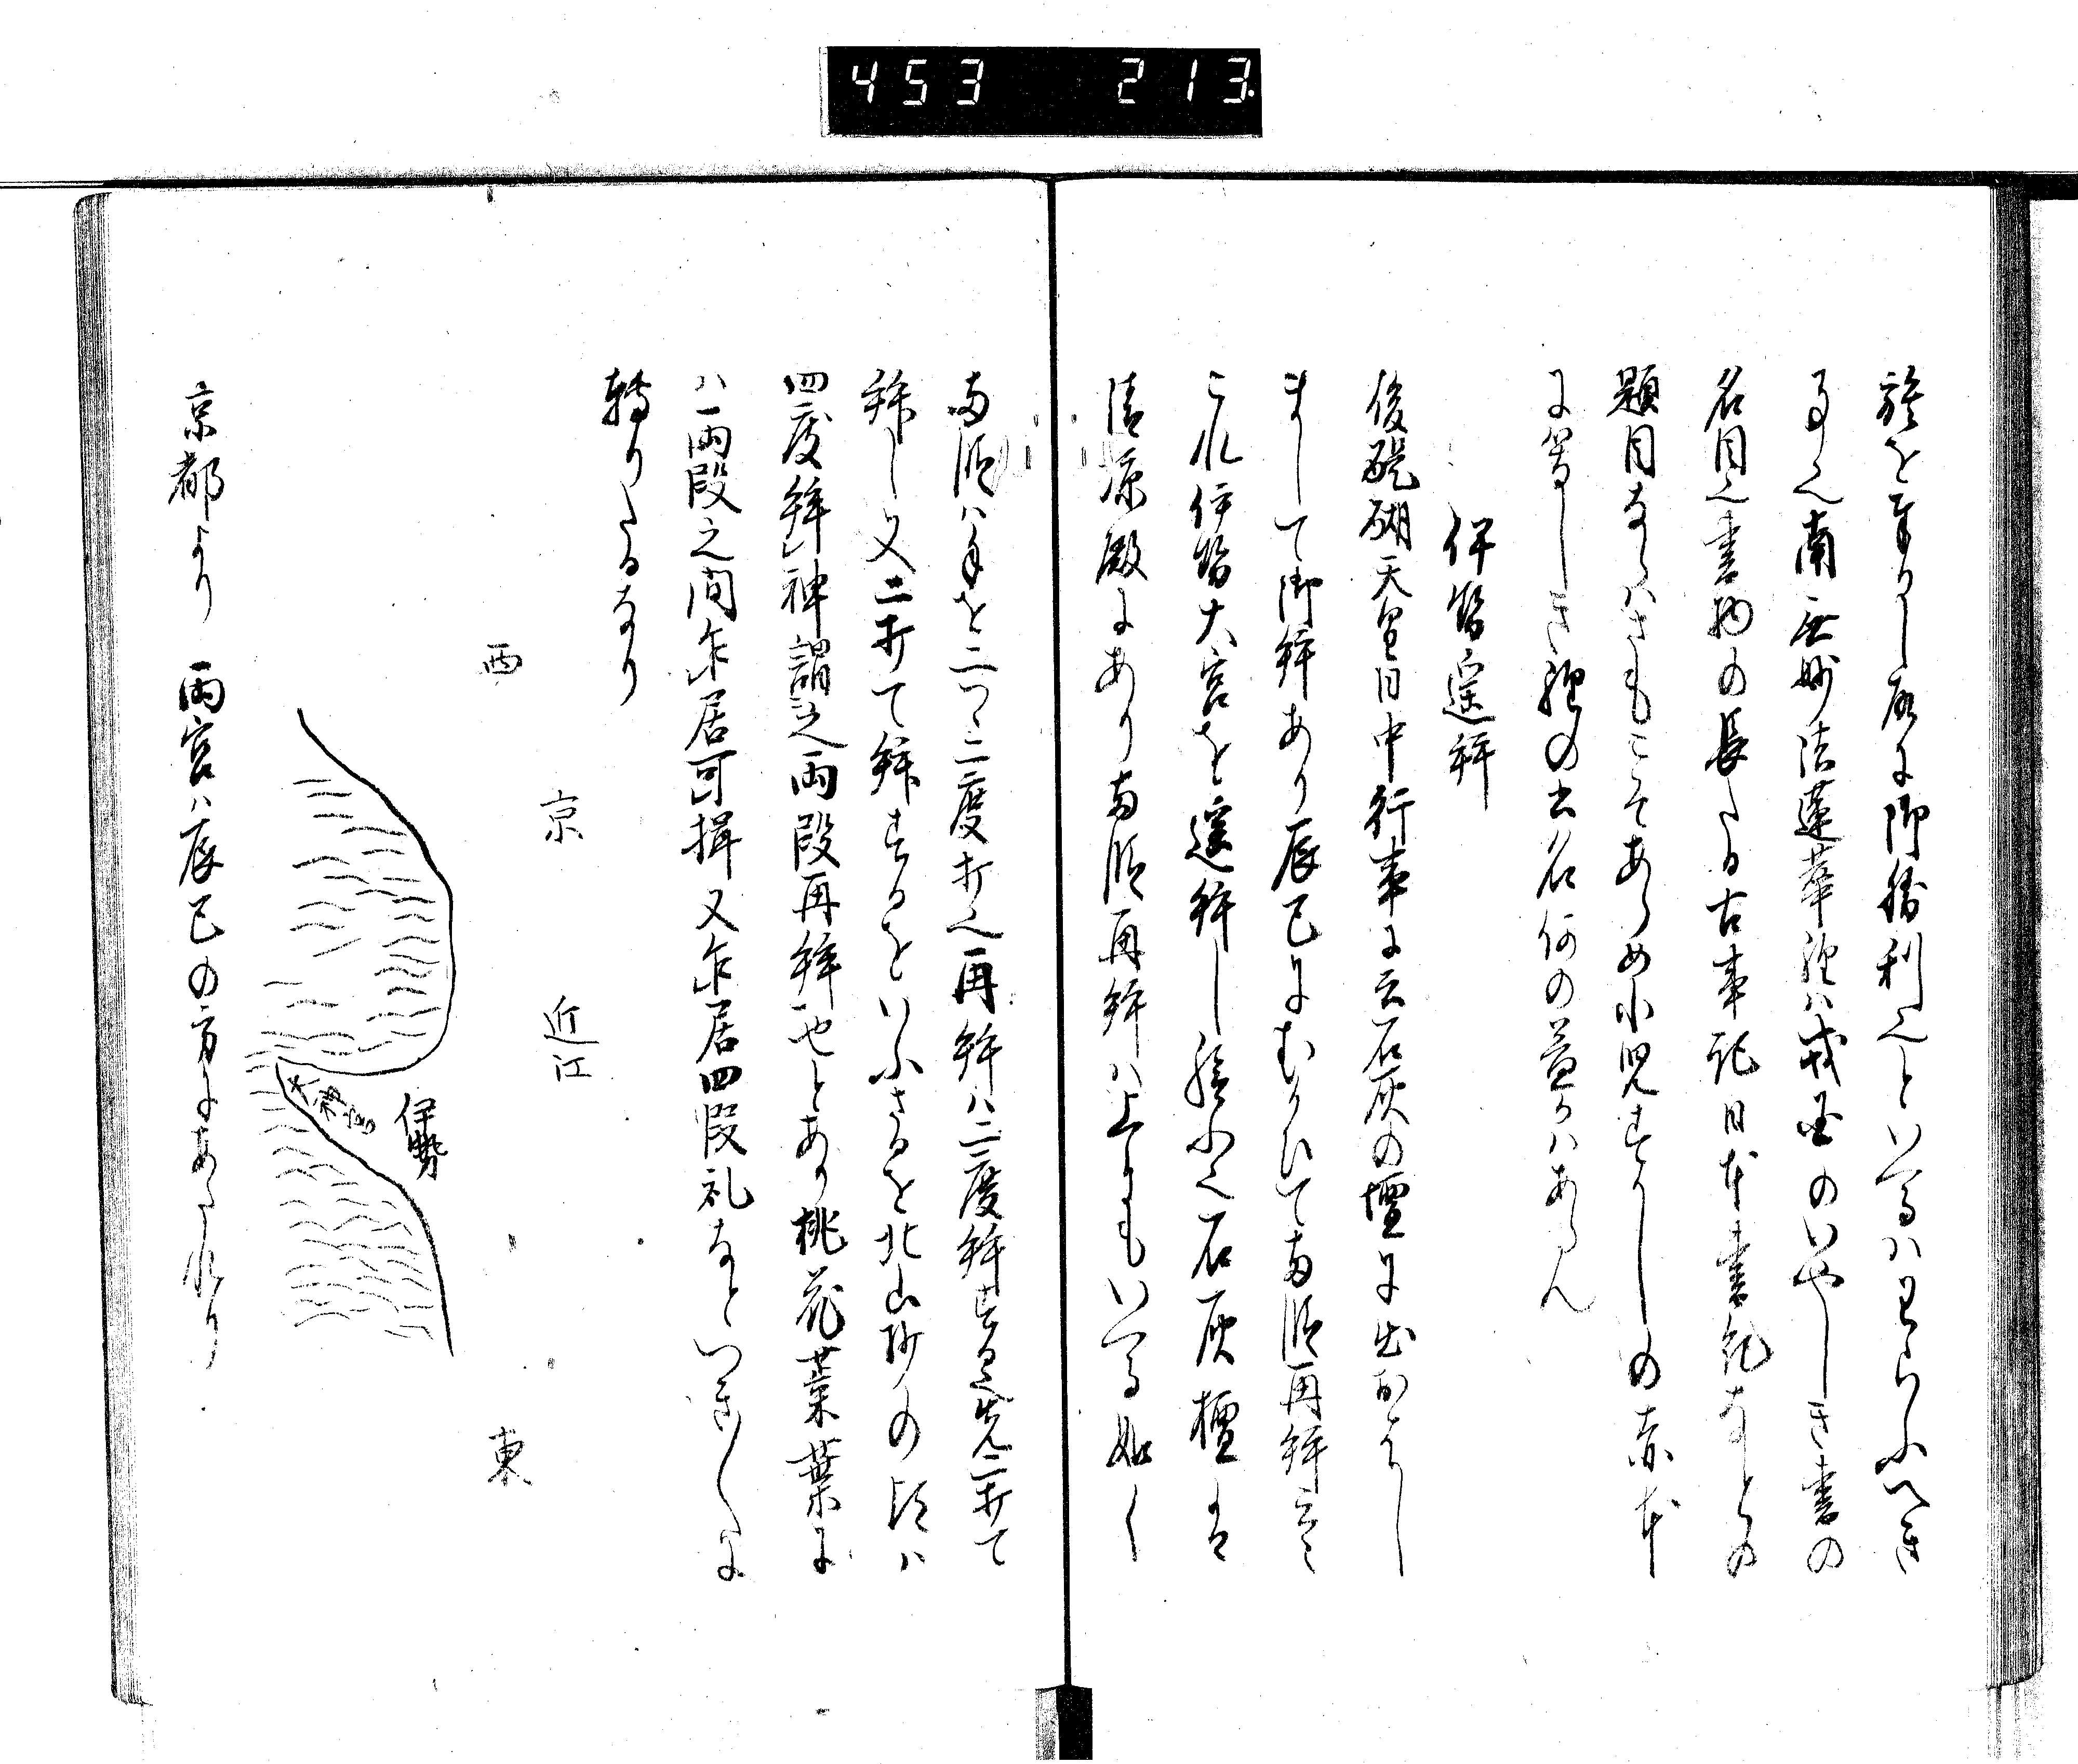 453 213
旅をせし故に御勝利也といへるハわらふへき
事也南無妙法蓮華経ハ戎国のいやしき書の
名目也書物の長たる古事記日本書紀なとの
題目ならハさもこそあらめ小児すかしの赤本
に等しき経の書名何の益かハあらん
伊勢遥拝
後醍醐天皇日中行事に云石灰の壇に出おはし
まして御拝あり辰巳にむかひて両段再拝云々
これ伊勢大宮を遥拝し給ふ也石灰壇は
清凉殿にあり両段再拝ハ上にもいへる如く
両段ハ手を二つゝ二度打也再拝ハ二度拝する也先二打て
拝し又二打て拝するをいふさるを北山抄の頃ハ
四度拝神謂之両段再拝也とあり桃花蘂葉に
ハ両段之間乍居可揖又乍居四段礼なといつきしに
転りたるなり
西
京
近江
東
伊勢
大神宮
京都より 両宮ハ辰巳の方にあたれり